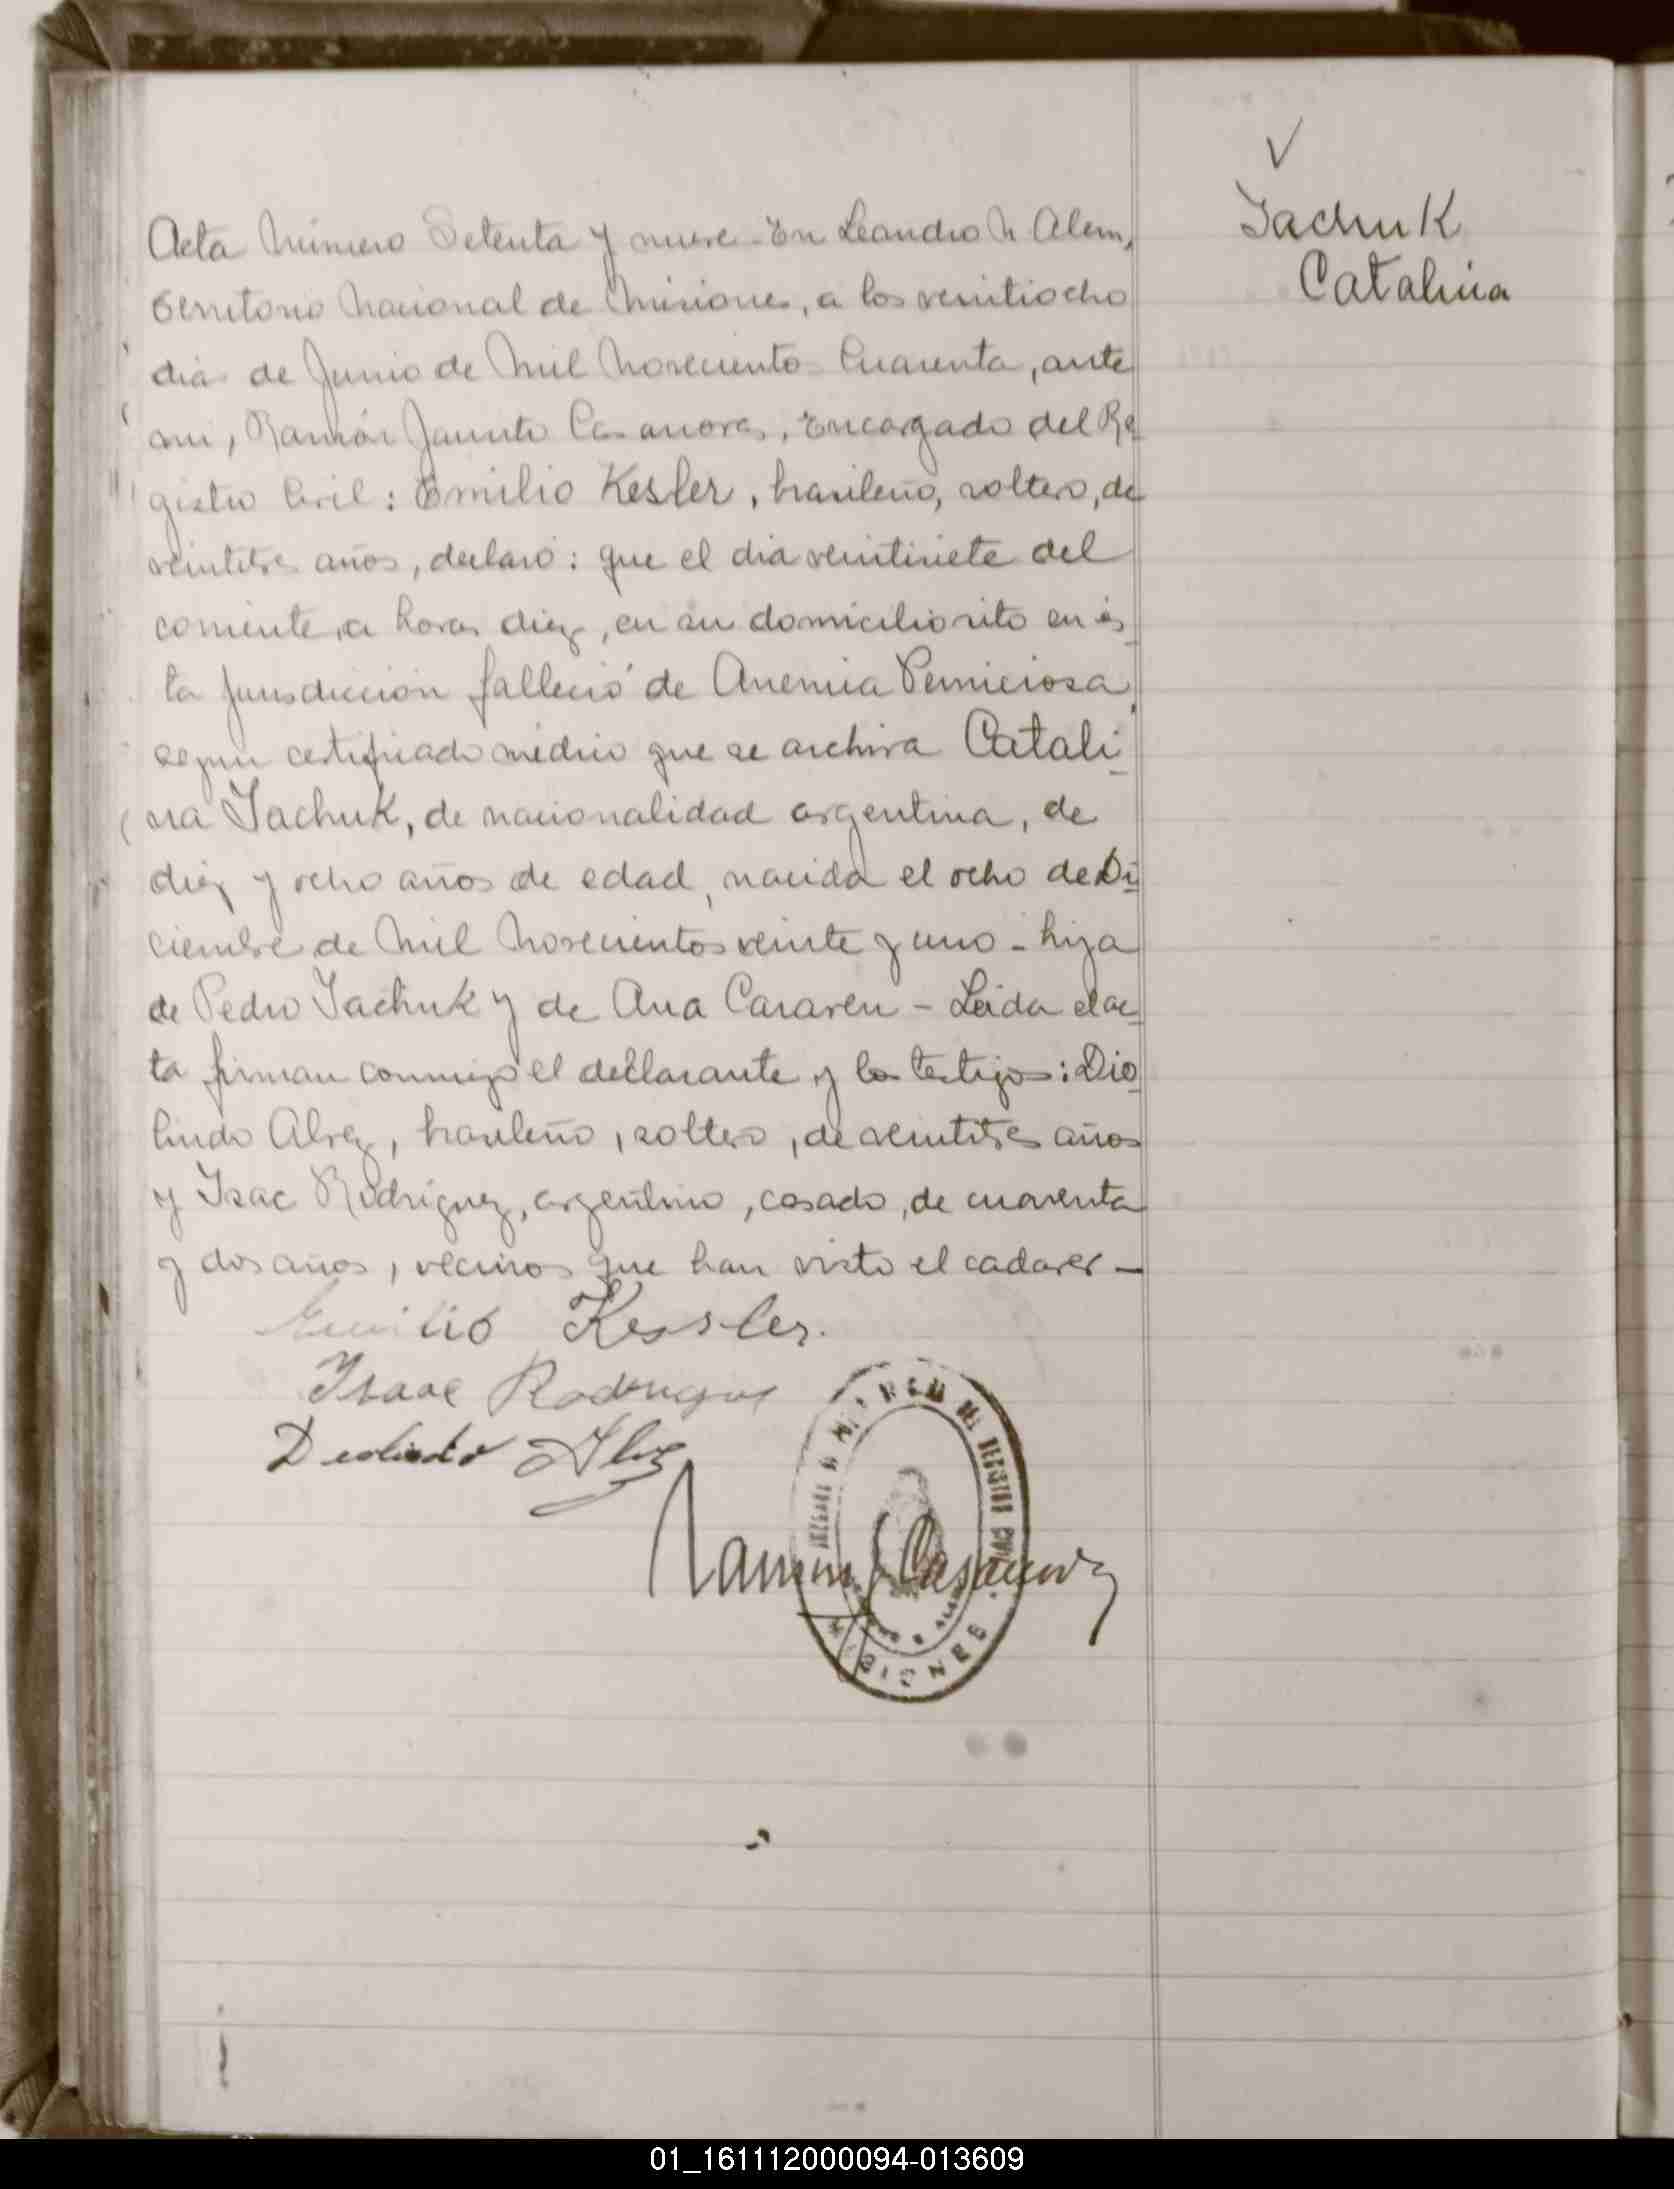 ✓
Iachuk
Catalina
Acta Número Setenta y nueve - En Leandro N Alem,
territorio Nacional de Misiones, a los veintiocho
dias de Junio de Mil Novecientos Cuarenta, ante
mi, Ramón Jacinto Casanova, Encargado del Re
gistro Civil: Emilio Kesler, brasileño, soltero, de
veintitres años, declaró: que el dia veintisiete del
corriente, a horas diez, en su domicilio sito en és
ta jurisdicción falleció de Anemia Perniciosa,
segun certificado médico que se archiva Catali
na Iachuk, de nacionalidad argentina, de
diez y ocho años de edad, nacida el ocho de Di
ciembre de Mil Novecientos veinte y uno - hija
de Pedro Iachuk y de Ana Cararen - Leida el ac
ta firman conmigo el decllarante y los testigos: Dio
lindo Alvez, brasileño, soltero, de veintitres años
y Isac Rodriguez, argentino, casado, de cuarenta
y dos años, vecinos que han visto el cadaver -
Emilio Kessler.
Isaac Rodriguez
Deolindo Alvez
Ramon J Casanova
REGISTRO CIVIL
MISIONES
01_161112000094-013609